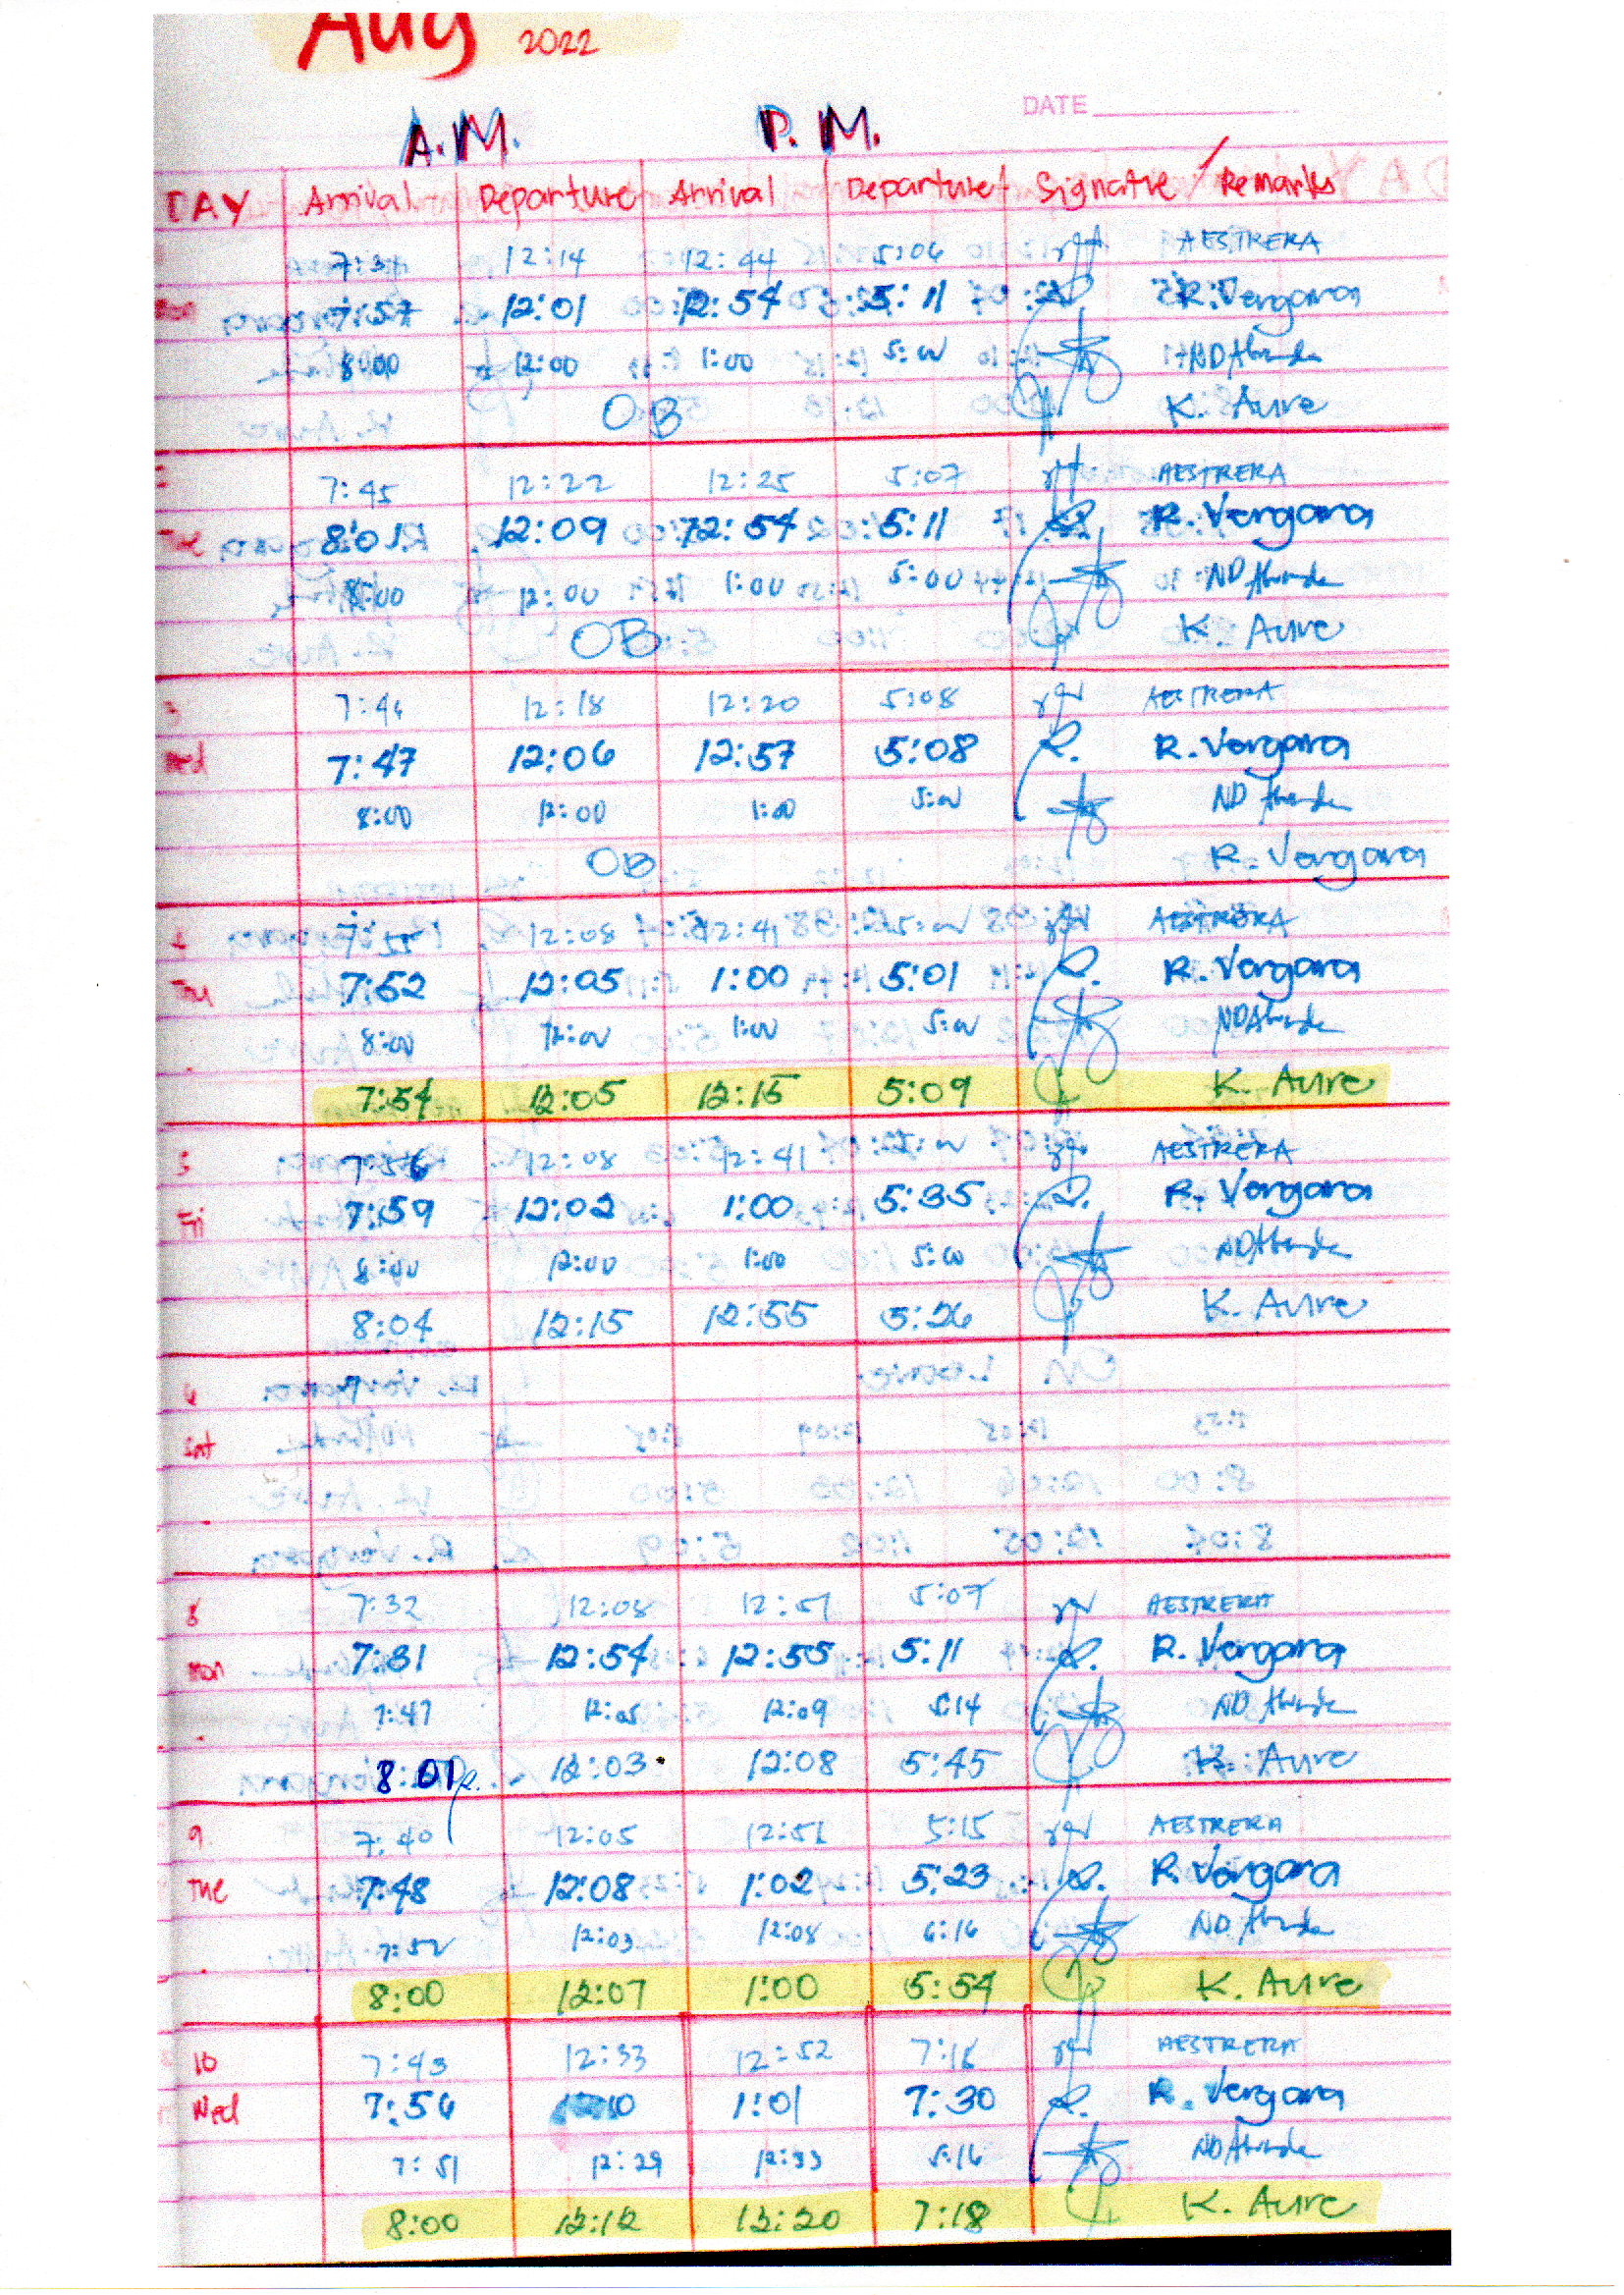 Aug 2022
DATE
A.M. P.M.
DAY Arrival Departure Arrival Departure Signature / Remarks
12:14 12:44 5:06 AESTRERA
Mon 7:57 12:01 12:54 5:11 R. Vergara
8:00 12:00 1:00 5:00
OB K. Aure
7:45 12:22 12:25 5:07 AESTRERA
Tue 8:01 12:09 12:54 5:11 R. Vergara
8:00 12:00 1:00 5:00
OB K. Aure
3 12:18 12:20 5:08 AESTRERA
Wed 7:47 12:06 12:57 5:08 R. Vergara
8:00 12:00 1:00 5:00
OB R. Vergara
4 7:55 12:08 12:41 5:00 AESTRERA
7:52 12:05 1:00 5:01 R. Vergara
8:00 12:00 1:00 5:00
7:54 12:05 12:15 5:09 K. Aure
5 7:56 12:08 12:41 5:00 AESTRERA
Fri 7:59 12:02 1:00 5:35 R. Vergara
8:00 12:00 1:00 5:00
8:04 12:15 12:55 5:26 K. Aure
6
Sat
8 7:32 12:08 12:51 5:07 AESTRERA
Mon 7:31 12:54 12:55 5:11 R. Vergara
7:47 12:05 12:09 5:14
8:01 12:03 12:08 5:45 K. Aure
9 7:40 12:05 12:51 5:15 AESTRERA
Tue 7:48 12:08 1:02 5:23 R. Vergara
7:52 12:03 12:08 6:16
8:00 12:07 1:00 5:54 K. Aure
10 7:43 12:33 12:52 7:16 AESTRERA
Wed 7:56 12:10 1:01 7:30 R. Vergara
7:51 12:29 12:33 5:16
8:00 12:12 12:20 7:18 K. Aure